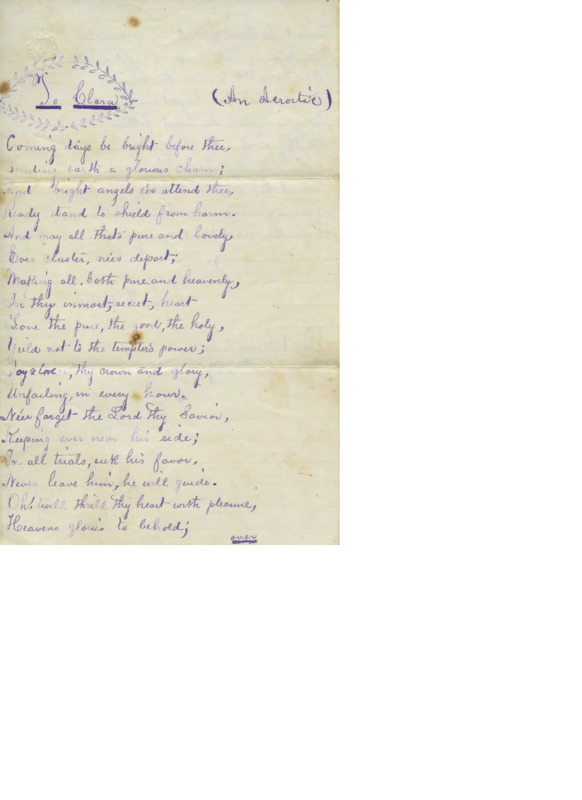 To Clara
(An Acrostic)
Coming days be bright before thee,
Lending earth a glorious charm;
And bright angels e'er attend thee,
Ready stand to shield from harm.
And may all that's pure and lovely,
Ever cluster, ne'er depart;
Making all, both pure and heavenly,
In thy inmost, secret, heart
Love the pure, the good, the holy,
Yield not to the tempter's power;
Joy & Love, thy crown and glory,
Unfailing, in every hour.
Ne'er forget the Lord thy Savior,
Keeping ever near his side;
In all trials, seek his favor,
Never leave him, he will guide.
Oh! twill thrill thy heart with pleasure,
Heavens glories to behold;
over